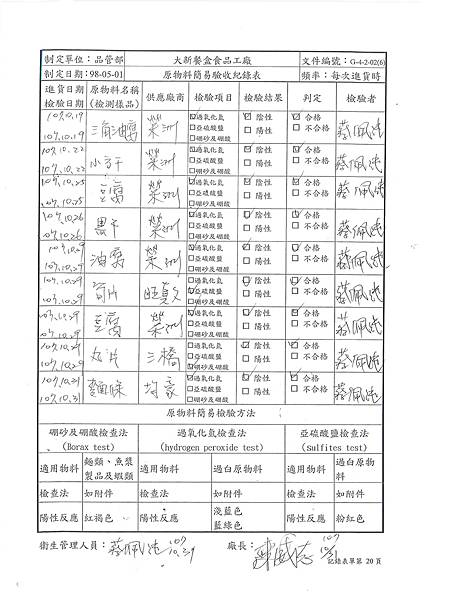 制定單位：品管部 大新餐盒食品工廠 文件編號：G-4-2-02(6)
制定日期：98-05-01 原物料簡易驗收紀錄表 頻率：每次進貨時
進貨日期 原物料名稱 供應廠商 檢驗項目 檢驗結果 判定 檢驗者
檢驗日期 (檢測樣品)
107.10.19 ☑過氧化氫 ☑陰性 ☑合格
107.10.19 三角油腐 榮洲 □亞硫酸鹽 □陽性 □不合格 蔡佩純
□硼砂及硼酸
107.10.22 ☑過氧化氫 ☑陰性 ☑合格
107.10.22 小方干 榮洲 □亞硫酸鹽 □陽性 □不合格 蔡佩純
□硼砂及硼酸
107.10.25 ☑過氧化氫 ☑陰性 ☑合格
107.10.25 豆腐 榮洲 □亞硫酸鹽 □陽性 □不合格 蔡佩純
□硼砂及硼酸
107.10.26 ☑過氧化氫 ☑陰性 ☑合格
107.10.26 黑干 榮洲 □亞硫酸鹽 □陽性 □不合格 蔡佩純
□硼砂及硼酸
107.10.29 ☑過氧化氫 ☑陰性 ☑合格
107.10.29 油腐 榮洲 □亞硫酸鹽 □陽性 □不合格 蔡佩純
□硼砂及硼酸
107.10.29 ☑過氧化氫 ☑陰性 ☑合格
107.10.29 筍片 □亞硫酸鹽 □陽性 □不合格 蔡佩純
□硼砂及硼酸
107.10.29 ☑過氧化氫 ☑陰性 ☑合格
107.10.29 豆腐 榮洲 □亞硫酸鹽 □陽性 □不合格 蔡佩純
□硼砂及硼酸
107.10.29 ☑過氧化氫 ☑陰性 ☑合格
107.10.29 片 三橋 □亞硫酸鹽 □陽性 □不合格 蔡佩純
□硼砂及硼酸
107.10.31 ☑過氧化氫 ☑陰性 ☑合格
107.10.31 麵 均豪 □亞硫酸鹽 □陽性 □不合格 蔡佩純
□硼砂及硼酸
原物料簡易檢驗方法
硼砂及硼酸檢查法 過氧化氫檢查法 亞硫酸鹽檢查法
(Borax test) (hydrogen peroxide test) (sulfites test)
適用物料 麵類、魚漿製品及蝦類 適用物料 過白原物料 適用物料 過白原物料
檢查法 如附件 檢查法 如附件 檢查法 如附件
陽性反應 紅褐色 陽性反應 淺藍色 藍綠色 陽性反應 粉紅色
衛生管理人員：蔡佩純 107 10.31 廠長： 107 10/31
記錄表單第 20 頁